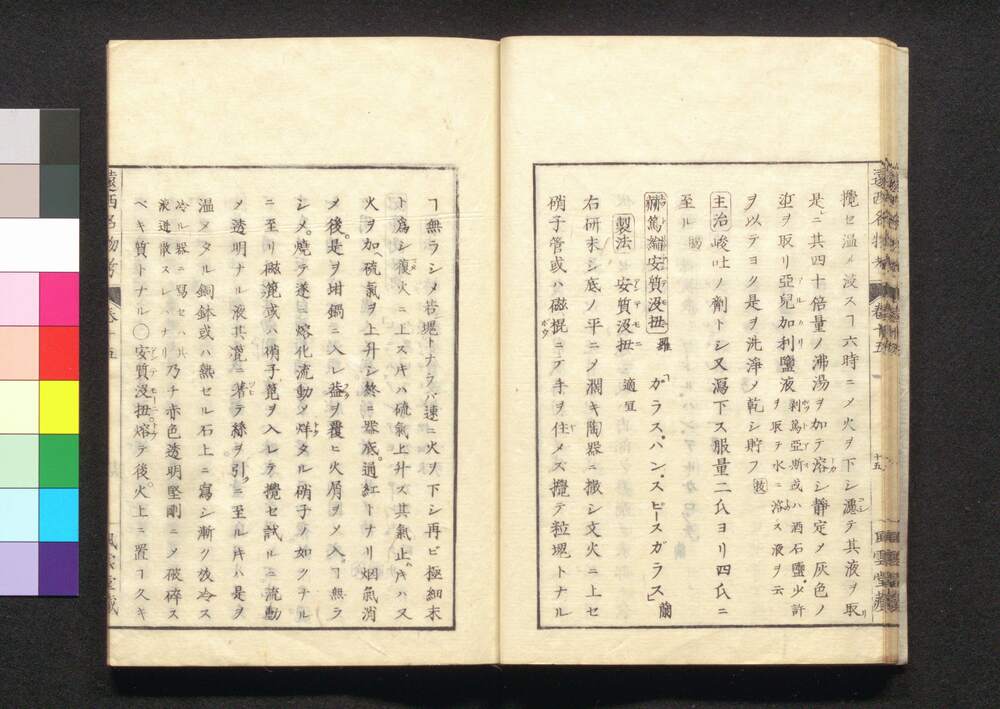 攪セ温ル液スヿ六時ニメ火ヲ下シ濾テ其液ヲ取リ
是ニ其四十倍量ノ沸湯ヲ加テ溶シ静定メ灰色ノ
泥ヲ取リ亞兒加利鹽液剥篤亞斯或ハ酒石鹽少許ヲ取テ水ニ溶ス液ヲ云
ヲ以テヨク是ヲ洗淨メ乾シ貯フ
主治 峻吐ノ劑トシ又瀉下ス服量二氏ヨリ四氏ニ
至ル
安質没扭 羅「ガラス、ハン、スピースガラス」蘭
製法 安質没扭 適宜
右研末シ底ノ平ニメ濶キ陶器ニ撒シ文火ニ上セ
硝子管或ハ磁棍ニテ手ヲ住メス攪テ粒塊トナル
十五
ヿ無ラシメ若塊トナラバ速ニ火ヲ下シ再ビ極細末
ト爲シ復火ニ上スキハ硫氣上升ス其氣止ムキハス
火ヲ加ヘ硫氣ヲ上升シ終ニ器底過紅トナリ烟氣消
メ後是ヲ坩鍋ニ入レ蓋ヲ覆ヒ火屑ヲメ入ヿ無ラ
シメ燒テ遂ニ熔化流動メ烊タル硝子ノ如クナル
ニ至リ磁箆或ハ硝子箆ヲ入レテ攪セ試ルニ流動
メ透明ナル液其箆ニ著テ絲ヲ引クニ至ルキハ是ヲ
温メタル銅鉢或ハ熱セル石上ニ寫シ漸ク放冷ス
冷ル器ニ寫セハ其液迸散スレハナリ乃チ赤色透明堅剛ニメ破碎ス
ベキ質トナル〇安質没扭熔テ後火上ニ置ヿ久キ
遠西名物考 卷十五
風雲堂藏